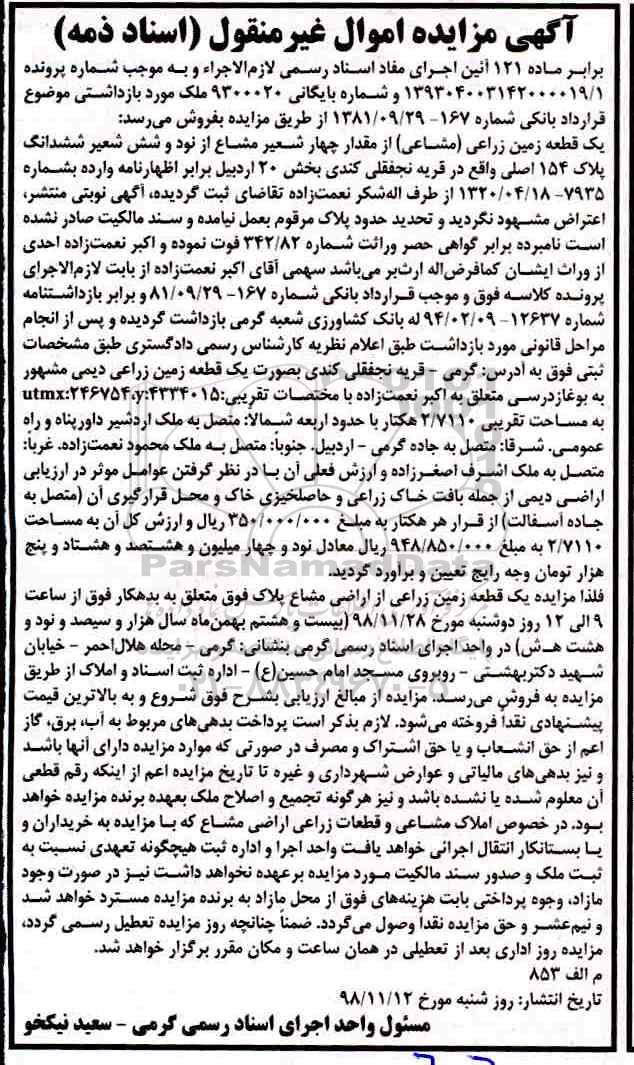 آگهی مزایده اموال غیرمنقول (اسناد ذمه)
برابر ماده ۱۲۱ آئین اجرای مفاد اسناد رسمی لازم‌الاجراء و به موجب شماره پرونده
۱۳۹۳۰۴۰۰۳۱۴۲۰۰۰۰۱۹/۱ و شماره بایگانی ۹۳۰۰۰۲۰ ملک مورد بازداشتی موضوع
قرارداد بانکی شماره ۱۶۷- ۱۳۸۱/۰۹/۲۹ از طریق مزایده بفروش می‌رسد:
یک قطعه زمین زراعی (مشاعی) از مقدار چهار شعیر مشاع از نود و شش شعیر ششدانگ
پلاک ۱۵۴ اصلی واقع در قریه نجفقلی کندی بخش ۲۰ اردبیل برابر اظهارنامه وارده بشماره
۷۹۳۵- ۱۳۲۰/۰۴/۱۸ از طرف اله‌شکر نعمت‌زاده تقاضای ثبت گردیده، آگهی نوبتی منتشر،
اعتراض مشهود نگردید و تحدید حدود پلاک مرقوم بعمل نیامده و سند مالکیت صادر نشده
است نامبرده برابر گواهی حصر وراثت شماره ۳۴۲/۸۲ فوت نموده و اکبر نعمت‌زاده احدی
از وراث ایشان کمافرض‌اله ارث‌بر می‌باشد سهمی آقای اکبر نعمت‌زاده از بابت لازم‌الاجرای
پرونده کلاسه فوق و موجب قرارداد بانکی شماره ۱۶۷- ۸۱/۰۹/۲۹ و برابر بازداشتنامه
شماره ۱۲۶۳۷- ۹۴/۰۲/۰۹ له بانک کشاورزی شعبه گرمی بازداشت گردیده و پس از انجام
مراحل قانونی مورد بازداشت طبق اعلام نظریه کارشناس رسمی دادگستری طبق مشخصات
ثبتی فوق به آدرس: گرمی - قریه نجفقلی کندی بصورت یک قطعه زمین زراعی دیمی مشهور
به بوغازدرسی متعلق به اکبر نعمت‌زاده با مختصات تقریبی: utmx:۲۴۶۷۵۴،y:۴۳۳۴۰۱۵
به مساحت تقریبی ۲/۷۱۱۰ هکتار با حدود اربعه شمالا: متصل به ملک اردشیر داورپناه و راه
عمومی. شرقا: متصل به جاده گرمی - اردبیل. جنوبا: متصل به ملک محمود نعمت‌زاده. غربا:
متصل به ملک اشرف اصغرزاده و ارزش فعلی آن با در نظر گرفتن عوامل موثر در ارزیابی
اراضی دیمی از جمله بافت خاک زراعی و حاصلخیزی خاک و محل قرارگیری آن (متصل به
جاده آسفالت) از قرار هر هکتار به مبلغ ۳۵۰/۰۰۰/۰۰۰ ریال و ارزش کل آن به مساحت
۲/۷۱۱۰ به مبلغ ۹۴۸/۸۵۰/۰۰۰ ریال معادل نود و چهار میلیون و هشتصد و هشتاد و پنج
هزار تومان وجه رایج تعیین و برآورد گردید.
فلذا مزایده یک قطعه زمین زراعی از اراضی مشاع پلاک فوق متعلق به بدهکار فوق از ساعت
۹ الی ۱۲ روز دوشنبه مورخ ۹۸/۱۱/۲۸ (بیست و هشتم بهمن‌ماه سال هزار و سیصد و نود و
هشت هـ‌ش) در واحد اجرای اسناد رسمی گرمی بنشانی: گرمی - محله هلال‌احمر - خیابان
شهید دکتربهشتی - روبروی مسجد امام حسین(ع) - اداره ثبت اسناد و املاک از طریق
مزایده به فروش می‌رسد. مزایده از مبالغ ارزیابی بشرح فوق شروع و به بالاترین قیمت
پیشنهادی نقدا فروخته می‌شود. لازم بذکر است پرداخت بدهی‌های مربوط به آب، برق، گاز
اعم از حق انشعاب و یا حق اشتراک و مصرف در صورتی که موارد مزایده دارای آنها باشد
و نیز بدهی‌های مالیاتی و عوارض شهرداری و غیره تا تاریخ مزایده اعم از اینکه رقم قطعی
آن معلوم شده یا نشده باشد و نیز هرگونه تجمیع و اصلاح ملک بعهده برنده مزایده خواهد
بود. در خصوص املاک مشاعی و قطعات زراعی اراضی مشاع که با مزایده به خریداران و
یا بستانکار انتقال اجرائی خواهد یافت واحد اجرا و اداره ثبت هیچگونه تعهدی نسبت به
ثبت ملک و صدور سند مالکیت مورد مزایده برعهده نخواهد داشت نیز در صورت وجود
مازاد، وجوه پرداختی بابت هزینه‌های فوق از محل مازاد به برنده مزایده مسترد خواهد شد
و نیم‌عشر و حق مزایده نقدا وصول می‌گردد. ضمنا چنانچه روز مزایده تعطیل رسمی گردد،
مزایده روز اداری بعد از تعطیلی در همان ساعت و مکان مقرر برگزار خواهد شد.
م الف ۸۵۳
تاریخ انتشار: روز شنبه مورخ ۹۸/۱۱/۱۲
مسئول واحد اجرای اسناد رسمی گرمی - سعید نیکخو
ParsNamadData